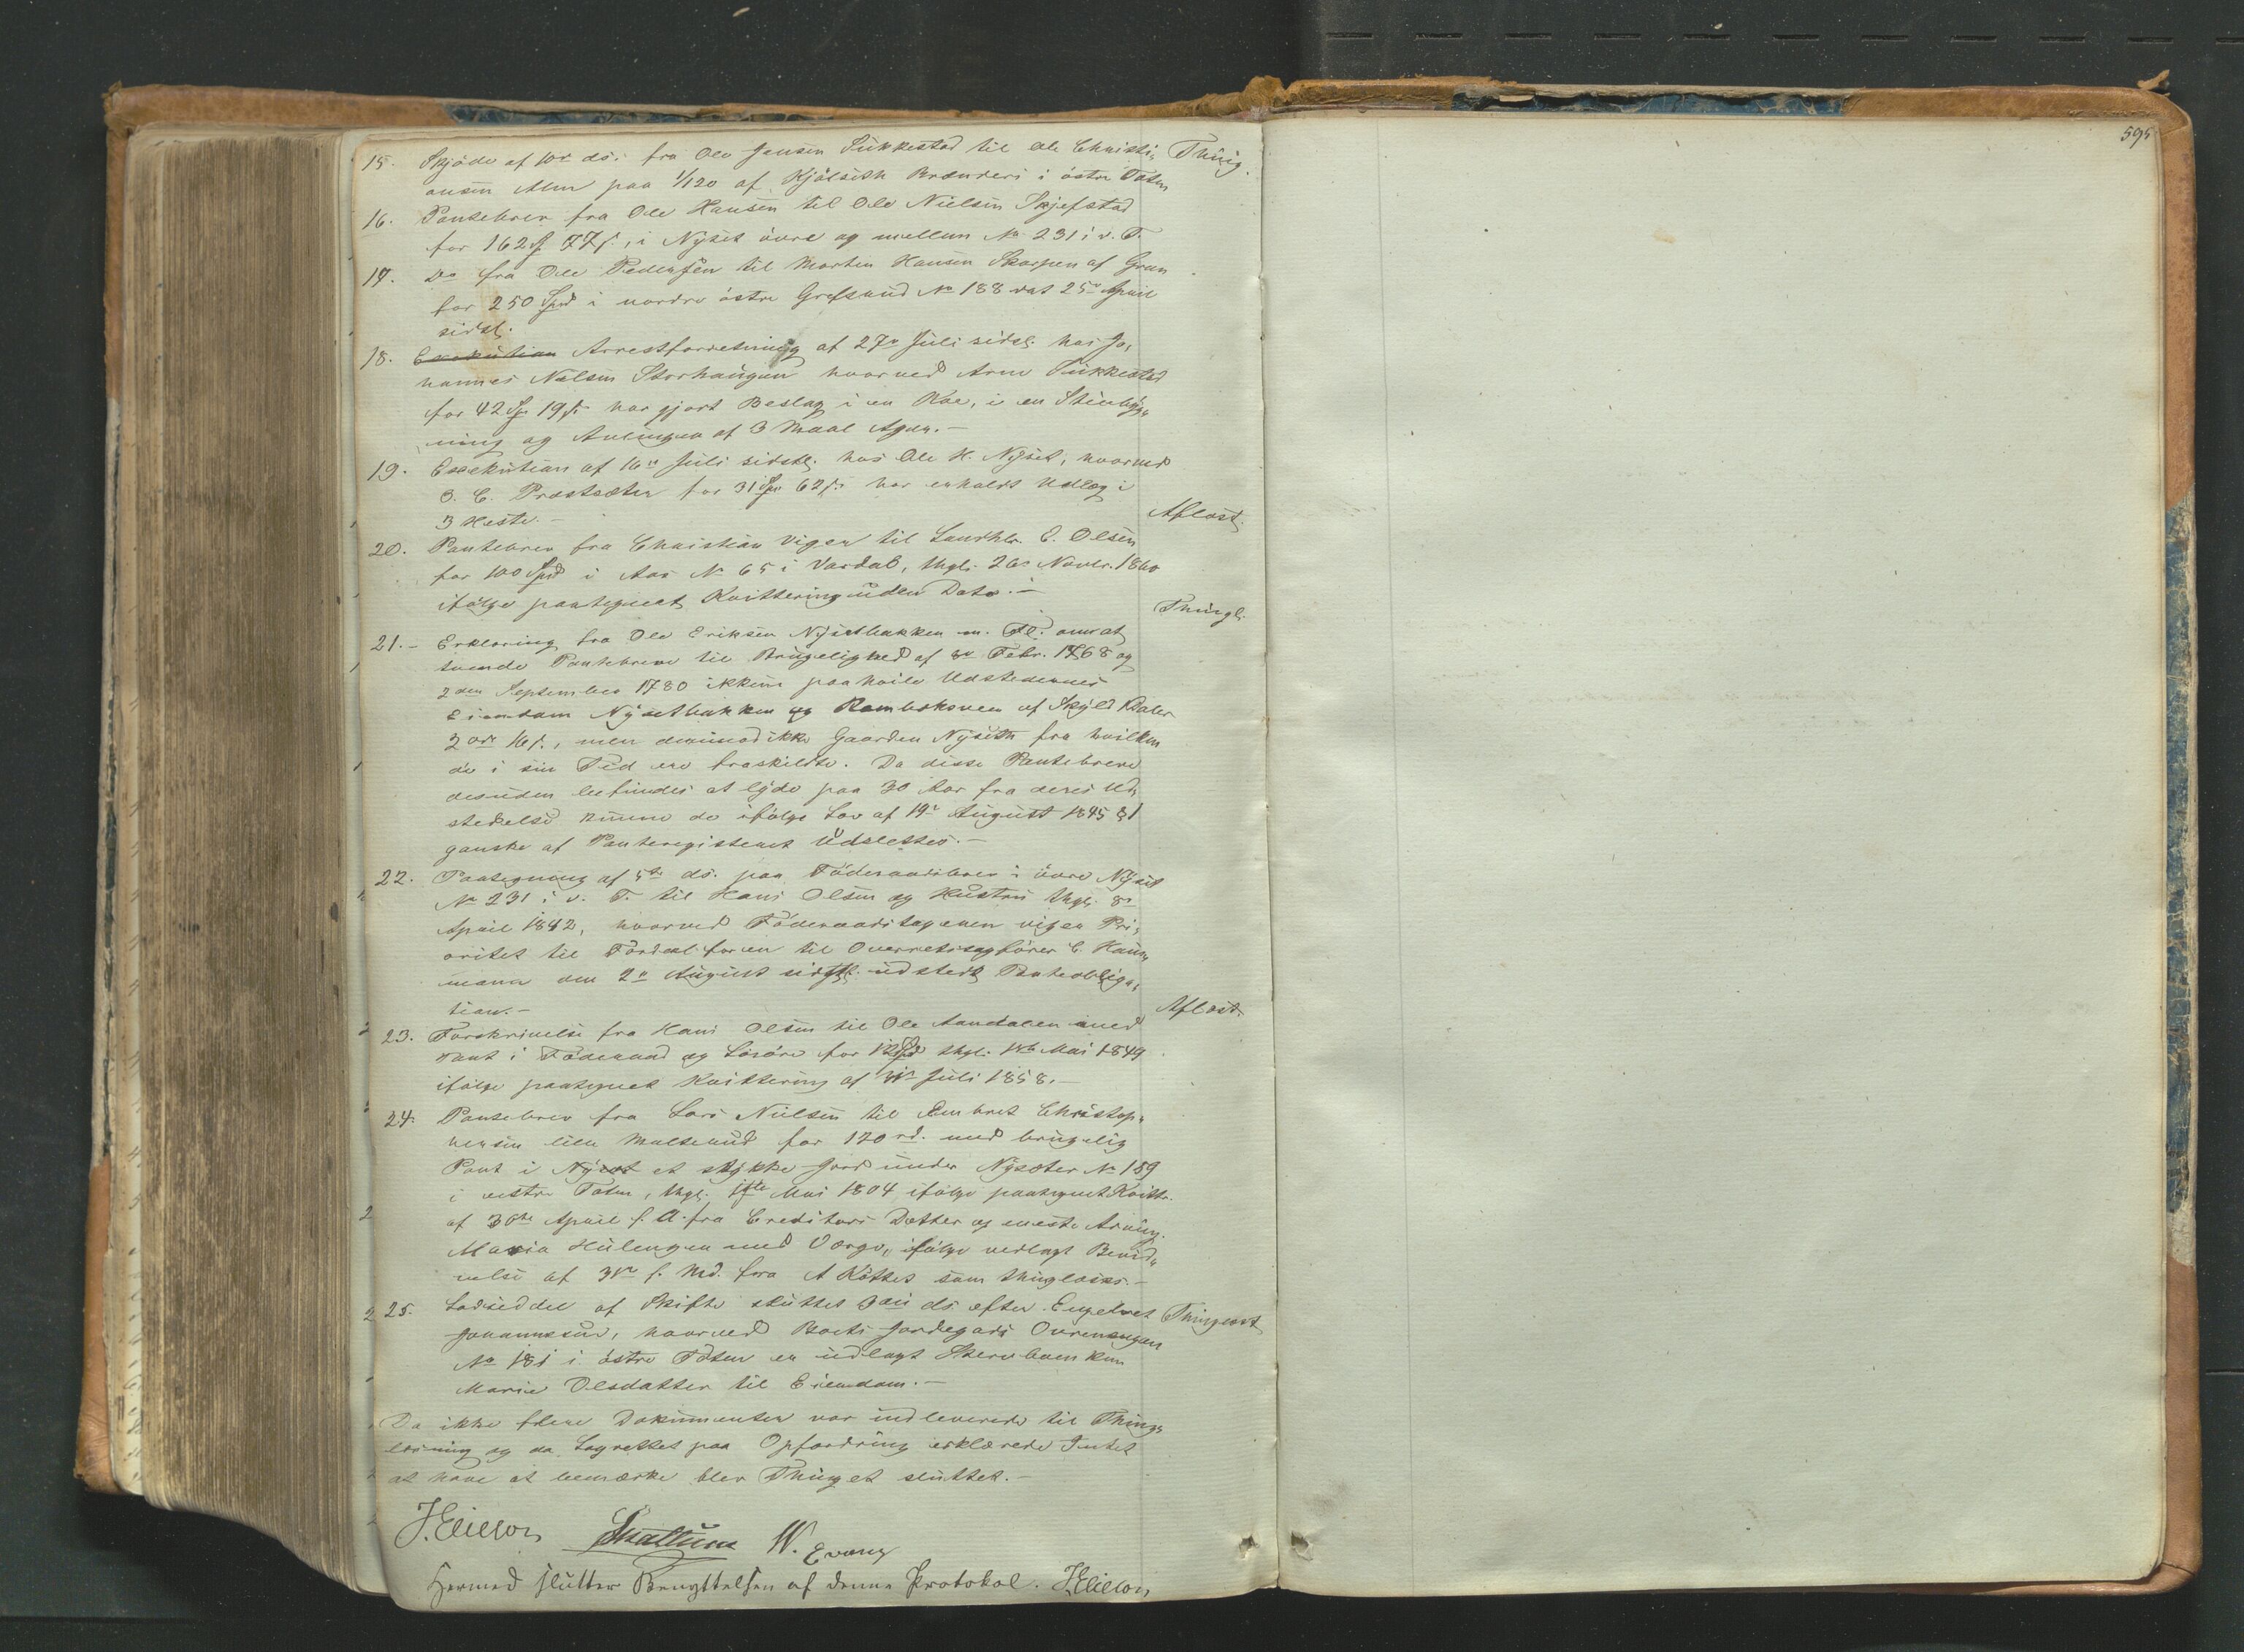 595
15. Skjöde af 10de ds. fra Ole Jensen Sukkestad til Ole Christi- Thing.
ansen Alm paa 1/120 af Kjölseth Brænderi i östre Toten
16. Pantebrev fra Ole Hansen til Ole Nielsen Skjefstad
for 162 Sp 77 s., i Nyset övre og mellem No 231 i v. T.
17. Do fra Ole Pedersen til Morten Hansen Skarpen af Gran
for 250 Spd i nordre östre Grefsrud No 188 dat 25de April
sidstl.
18. Exekution Arrestforretning af 27de Juli sidstl. hos Jo-
hannes Nelsen Storhaugen hvorved Arne Sukkestad
for 42 Sp 19 s. har gjort Beslag i en Koe, i en Stuebyg-
ning og Avlingen af 3 Maal Ager.-
19. Exekution af 16de Juli sidstl. hos Ole H. Nyset, hvorved
O. C. Præstsæter for 31 Sp 62 s. har erholdt Udlæg i
3 Heste.-
Aflæst.
20. Pantebrev fra Christian Vigen til Landhdl. E. Olsen
for 100 Spd i Aas No 65 i Vardal, thgl. 26de Novbr. 1860
ifölge paategnet Kvittering uden Dato.-
Thingl.
21.- Erklæring fra Ole Eriksen Nysetbakken m. Fl. om at
tvende Pantebreve til Brugelighed af 8de Febr. 1768 og
2den September 1780 ikkun paahvile Udstedernes
Eiendom Nysetbakken og af Skyld Daler
2 ort 16 s., men derimod ikke Gaarden Nyseth fra hvilken
de i sin Tid ere fraskildte. Da disse Pantebreve
desuden befindes at lyde paa 30 Aar fra deres Ud-
stedelse kunne de ifölge Lov af 19de August 1845 § 1
ganske af Panteregisteret Udslettes.-
22. Paategning af 5te ds. paa Föderaadsbrev i övre Nyset
No 231 i v. T. til Hans Olsen og Hustru thgl. 8de
April 1842, hvorved Föderaadstageren viger Pri-
oritet til Fordeel for en til Overretssagförer C. Hau-
mann den 2de August sidstl. udstedt Panteobliga-
tion.-
Aflæst.
23. Forskrivelse fra Hans Olsen til Ole Aandalen med
Pant i Föderaad og Lösöre for 12 Spd thgl. Mai 1849
ifölge paategnet Kvittering af Juli 1858.-
24. Pantebrev fra Lars Nielsen til Embret Christop-
hersen lille Malterud for 120 rd. med brugelig
Pant i Nyset et stykke Jord under Nysæter No 189
i vestre Toten, thgl. Mai 1804 ifölge paategnet Kvittr.
af 30te April f. A. fra Creditors Datter og eneste Arving
Maria Hulengen med Værge, ifölge vedlagt Bevid-
nelse af 31te f. Md. fra A Köttet som thinglæses.-
25. Lodseddel af Skifte sluttet 3die ds. efter Engebret Thinglæst
Johannesen, hvorved Boets Jordegods Ovrenengen
No 181 i östre Toten er udlagt Stervboenken
Marie Olsdatter til Eiendom.-
Da ikke flere Dokumenter var indleverede til Thing-
læsning og da Lagrettet paa Opfordring erklærede Intet
at have at bemærke blev Thinget sluttet.-
J. Ellefsen Skattum W. Evang
Hermed slutter Benyttelsen af denne Protokol. J. Ellefsen